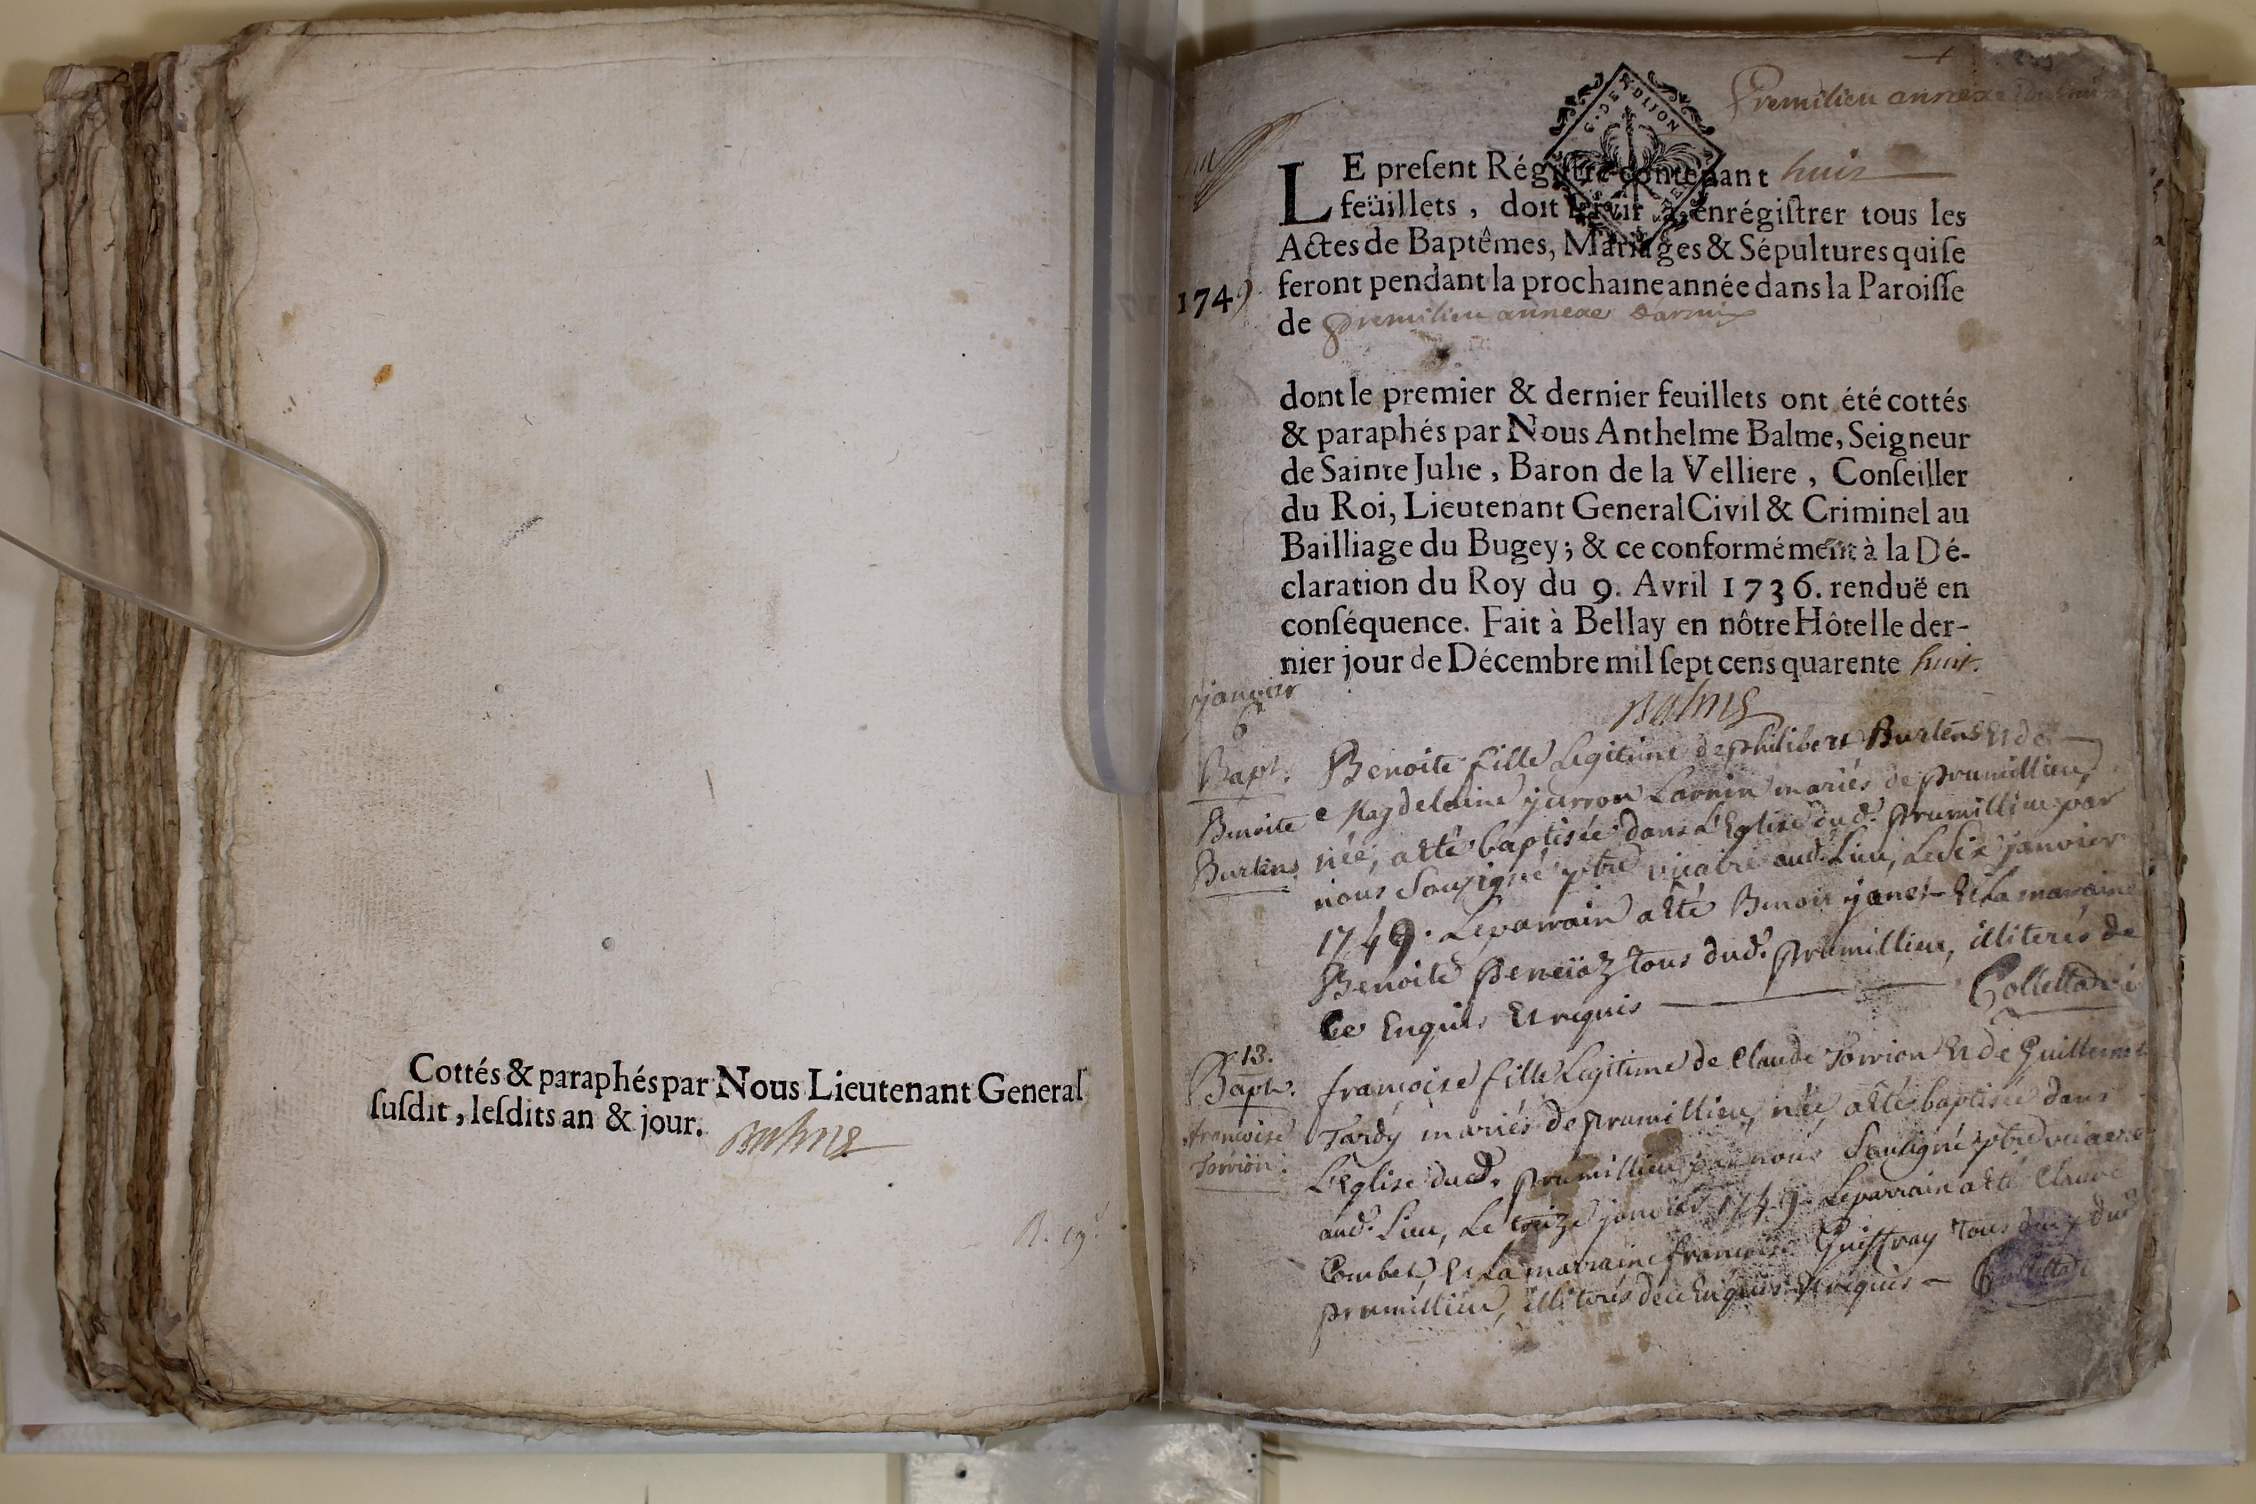 Cottés & paraphés par Nous Lieutenant General
susdit, lesdits an & jour.
Balme
Premilieu annexe
G. DE DIJON
LE present Régistre contenant huit
feüillets, doit servir à enrégistrer tous les
Actes de Baptêmes, Mariages & Sépultures qui se
feront pendant la prochaine année dans la Paroisse
1749
de premilieu annexe darmix
dont le premier & dernier feuillets ont été cottés
& paraphés par Nous Anthelme Balme, Seigneur
de Sainte Julie, Baron de la Velliere, Conseiller
du Roi, Lieutenant General Civil & Criminel au
Bailliage du Bugey; & ce conformément à la Dé-
claration du Roy du 9. Avril 1736. renduë en
conséquence. Fait à Bellay en nôtre Hôtel le der-
nier jour de Décembre mil sept cens quarente huit.
Balme
janvier
6
Bapt.
Benoite
Burtin
Benoite fille Legitime de philibert Burtin Et de
Magdelaine jurron Larnin mariés de prumillieu
née, a Eté baptisée dans L'Eglise dud. prumillieu par
nous Sousigné ptre vicaire aud. Lieu, Le Six janvier
1749. Le parrain a Eté Benoit janet Et La marraine
Benoite Peneïoz tous dud. prumillieu, illiterés de
Ce Enquis Et requis Collettaz vi
13.
Bapt.
francoise
Torrion.
francoise fille Legitime de Claude Torrion Et de Guillermet
Tardy mariés de prumillieu, née, a Eté baptisée dans
L'Eglise dud. prumillieu par nous Sousigné ptre vicaire
aud. Lieu, Le treize janvier 1749. Le parrain a Eté Claude
Combet, Et La marraine francoise Guiffray Tous deux dud
prumillieu, illiterés de ce Enquis Et requis Collettaz